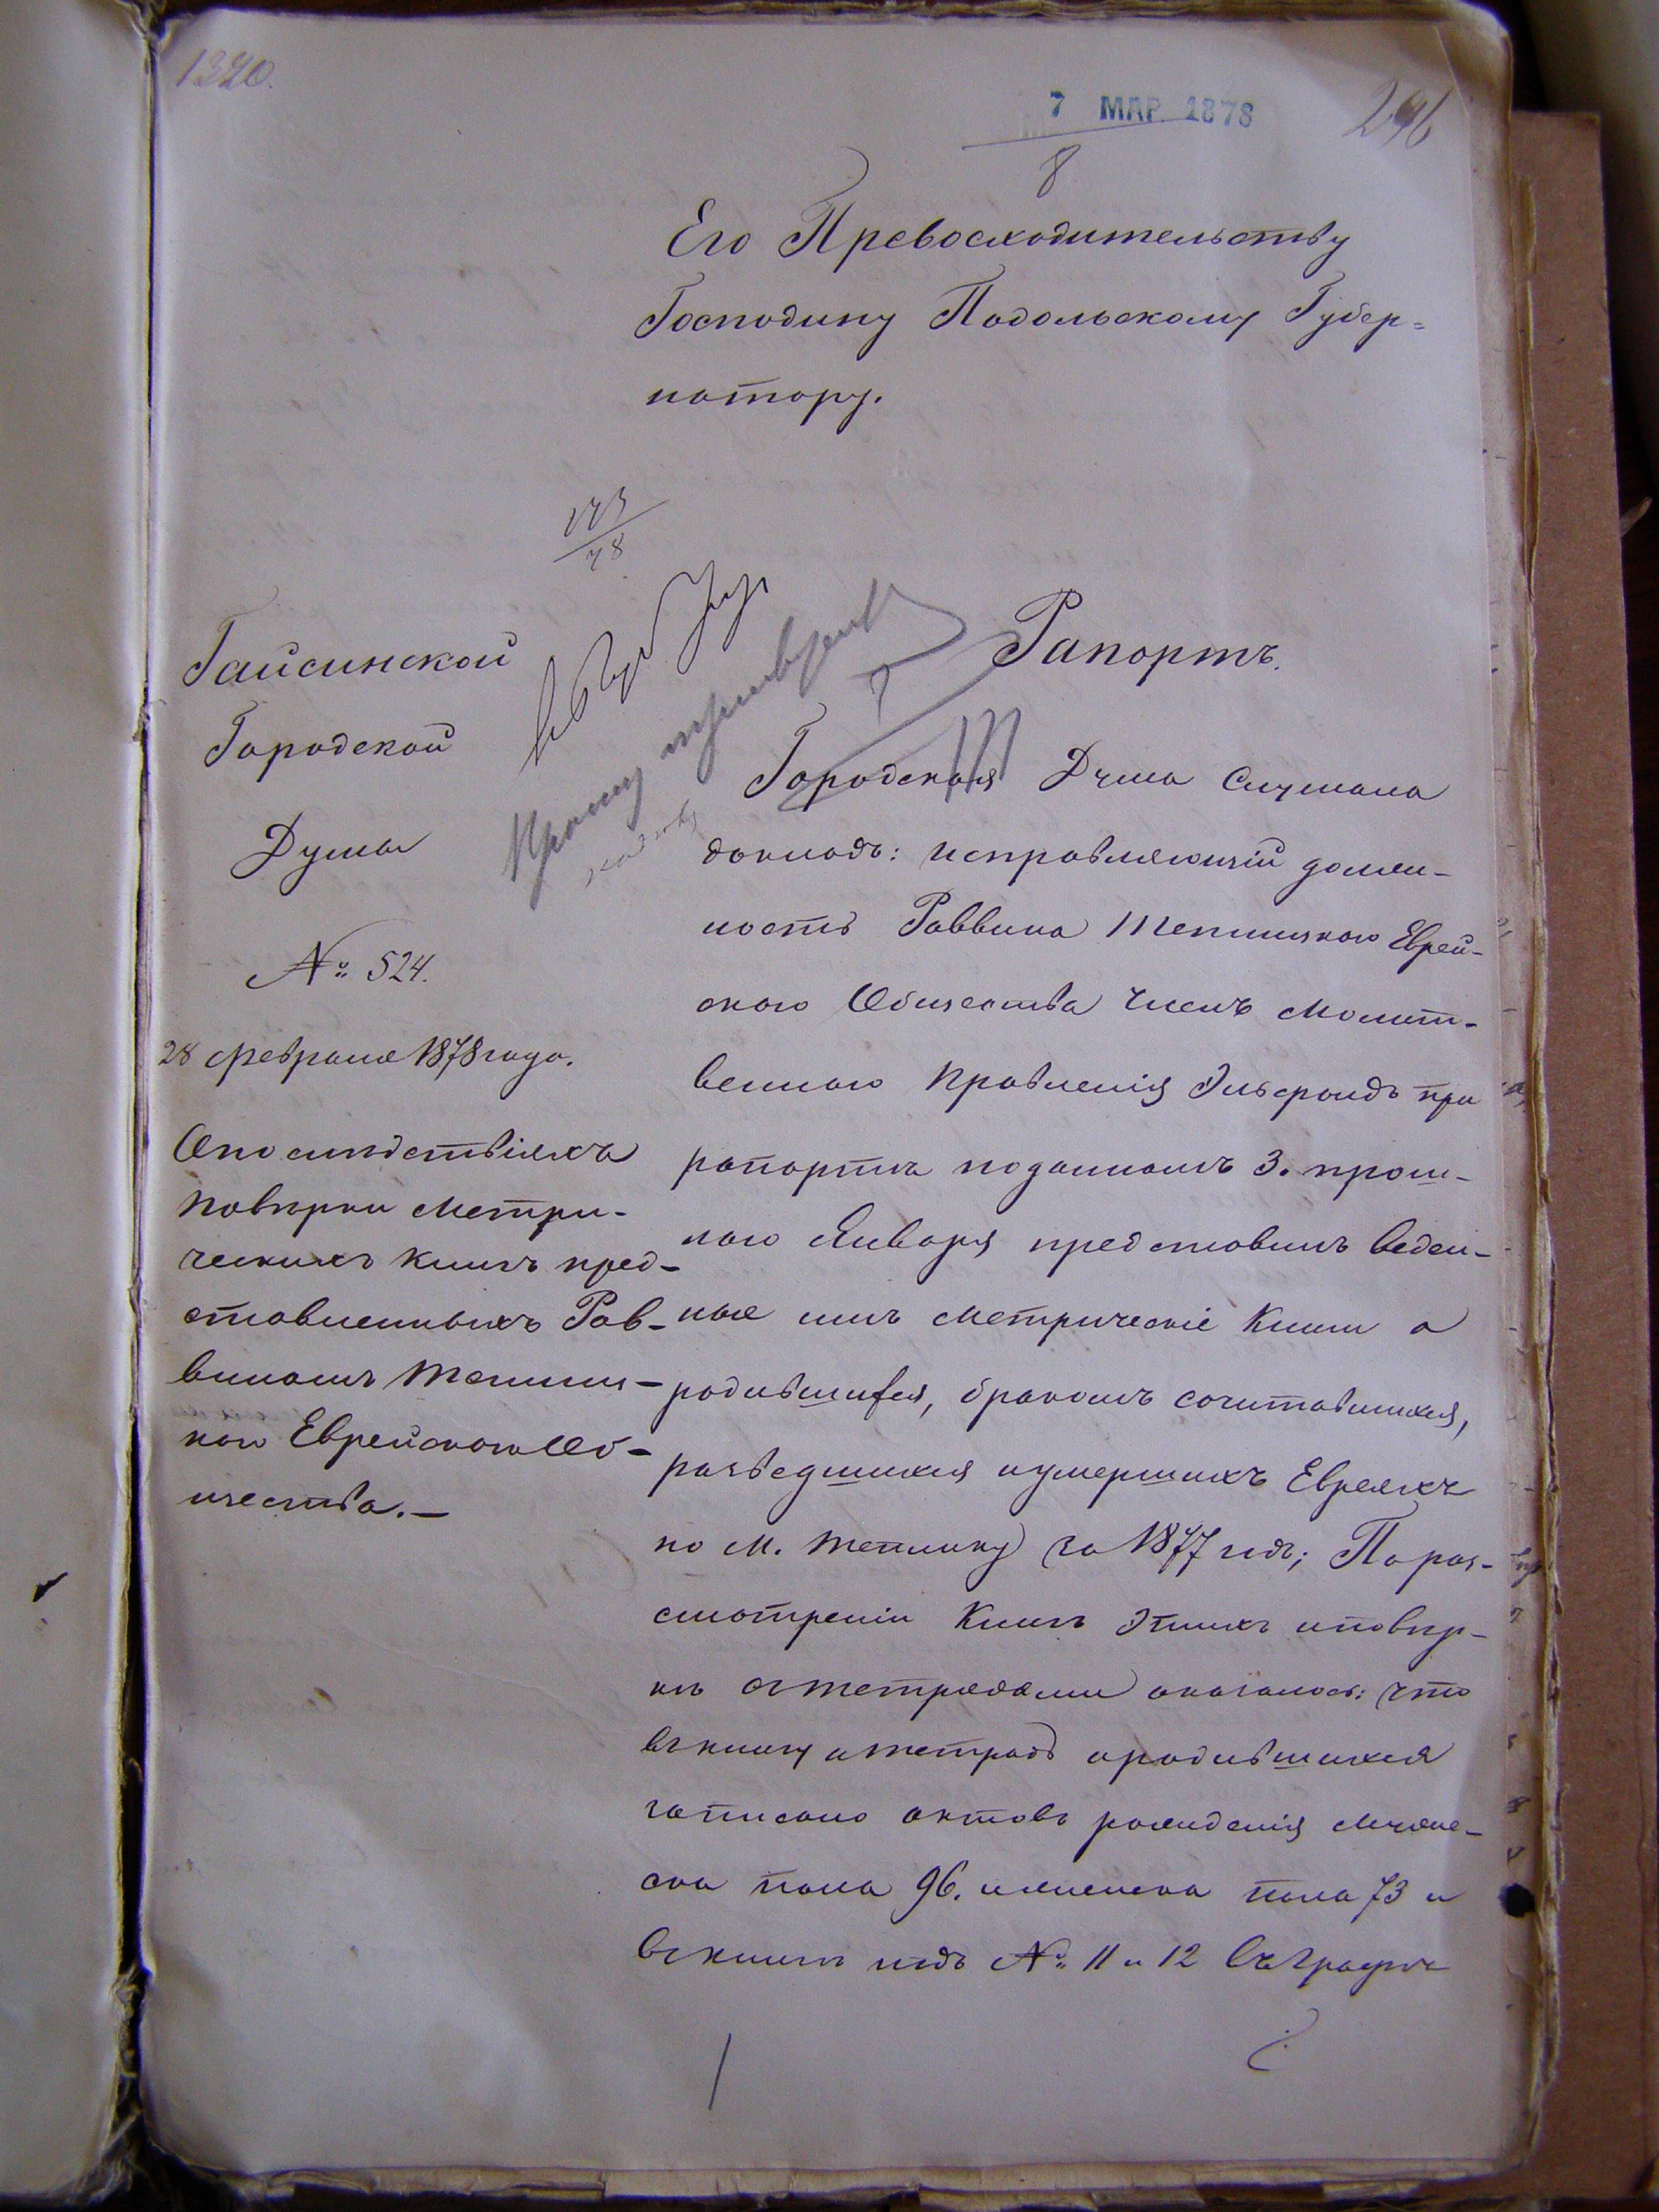 1320.
7 МАР. 1878
8
296
Его Превосходительству
Господину Подольскому Губер=
натору.
Гайсинской
Городской
Думы
№ 524.
28 февраля 1878 года.
О последствіяхъ
поверки метри-
ческихъ книгъ пред-
ставленныхъ Рав-
виномъ Теплиц-
каго Еврейскаго Об-
щества.—
78
Прошу
Рапортъ.
Городская Дума Слушала
докладъ: исправляющій долж-
ность Раввина Теплицкаго Еврей-
скаго Общества Членъ Молит-
веннаго Правленія Эльфондъ при
рапортѣ поданномъ 3. прош-
лаго Января представилъ веден-
ные имъ метрическіе Книги о
родившихся, бракомъ сочитавшихся,
разведшихся и умершихъ Евреяхъ
по м. Теплику за 1877 годъ; По раз-
смотреніи Книгъ этихъ и повѣр-
кѣ съ тетрадами оказалось: что
въ книгу и тетрадь о родившихся
записано актовъ рожденія мужес-
ска пола 96. и женска пола 73 и
въ книгѣ подъ № 11 и 12 въ графѣ